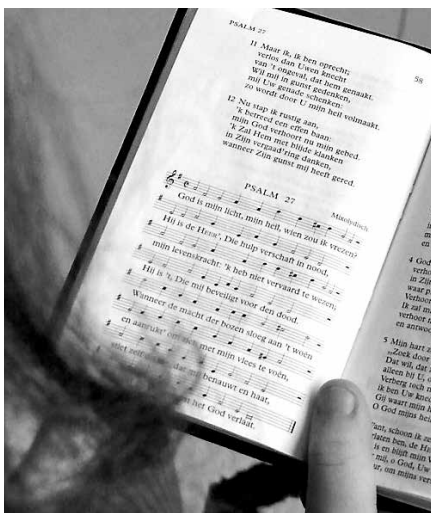 PSALM 27
58
11 Maar ik, ik ben oprecht;
verlos dan Uwen knecht
van 't ongeval, dat hem genaakt.
Wil mij in gunst gedenken,
mij Uw genade schenken:
zo wordt door U mijn heil volmaakt.
12 Nu stap ik rustig aan,
'k betreed een effen baan:
mijn God verhoort nu mijn gebed.
'k Zal Hem met blijde klanken
in Zijn vergaad'ring danken,
wanneer Zijn gunst mij heeft gered.
PSALM 27
Mixolydisch
God is mijn licht, mijn heil, wien zou ik vrezen?
Hij is de HEER', Die hulp verschaft in nood,
mijn levenskracht: 'k heb niet vervaard te wezen,
Hij is 't, Die mij beveiligt voor den dood.
Wanneer de macht der bozen sloeg aan 't woên
en aanrukt' om zich met mijn vlees te voên,
stiet zelf zich, dat mij benauwt en haat,
God verlaat.
4 God
verho
in Zij
waar
Verhoor
Ik zal m
verhoor m
en antwoo
5 Mijn hart z
„Zoek door
Dat wil, dat
alleen bij U, o
Verberg toch m
ik ben Uw knec
Gij waart mijn h
O God mijns heil
Want, schoon ik ze
verlaten ben, de H
is en blijft mijn V
mij, o God, Uw
om mijns vers